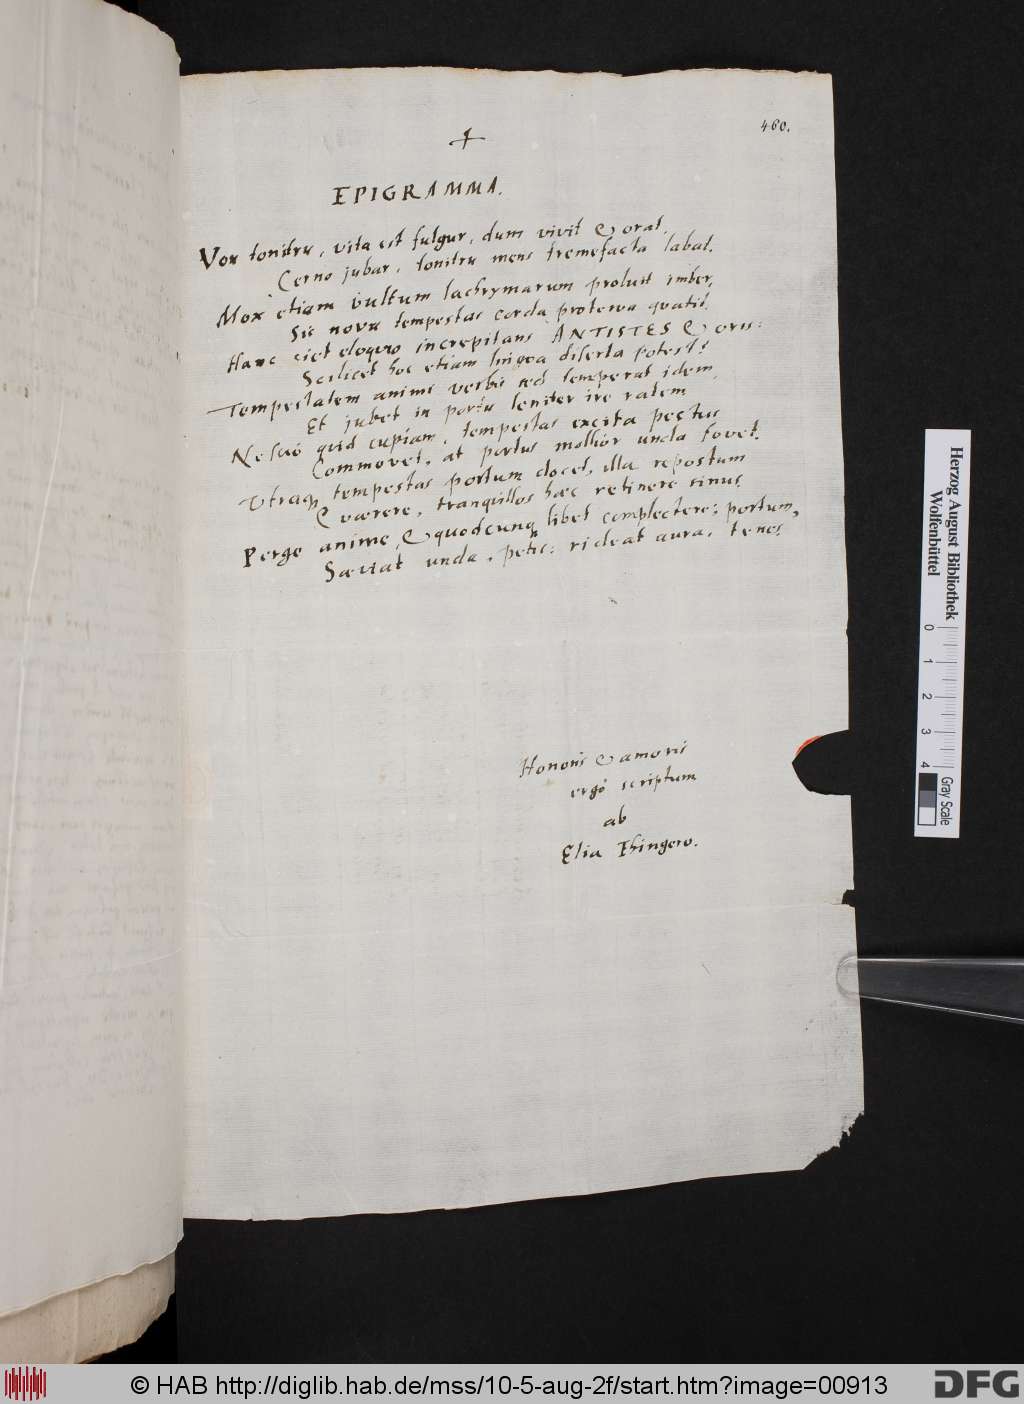 460.
EPIGRAMMA.
Vox tonitru, vita est fulgur, dum vivit & orat,
Cerno jubar, tonitru mens tremefacta labat.
Mox etiam vultum lachrymarum proluit imber,
Sic nova tempestas corda proterva quatit.
Hanc ciet eloquio increpitans ANTISTES & oris:
Scilicet hoc etiam lingva diserta potest!
Tempestatem animi verbis sed temperat idem,
Et jubet in portu leniter ire ratem
Nescio quid cupiam, tempestas excita pectus
Commovet, at portus mollior unda fovet.
Utraq tempestas portum docet, illa repostum
Qværere, tranquillos hæc retinere sinus.
Perge anime, & quodcunq libet complectere; portum,
Sæviat unda, petis: rideat aura, tenes.
Honoris & amoris
ergò scriptum
ab
Elia Ehingero.
Herzog August Bibliothek
Wolfenbüttel
0 1 2 3 4
Gray Scale
© HAB http://diglib.hab.de/mss/10-5-aug-2f/start.htm?image=00913
DFG